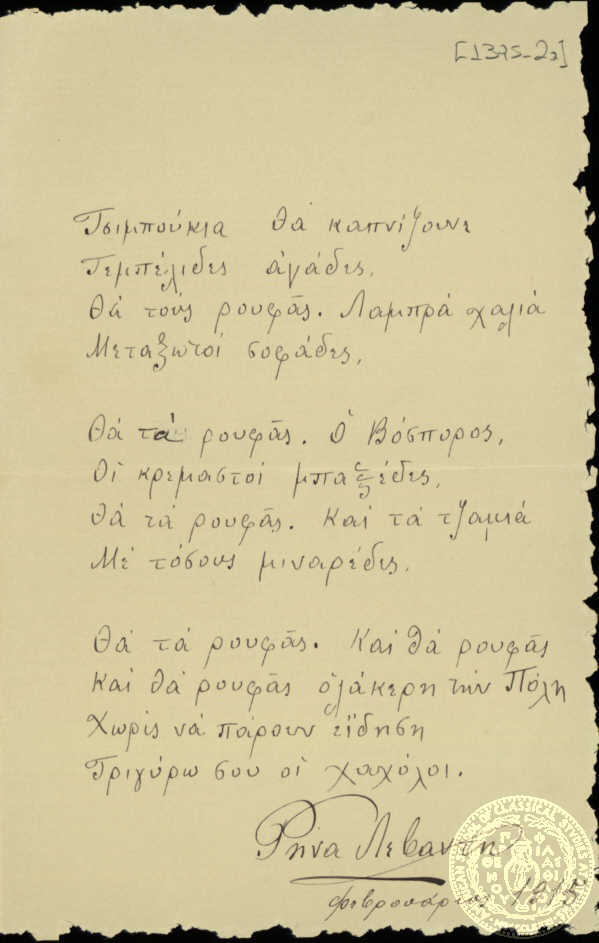 [1375-2a]
Τσιμπούκια θὰ καπνίζουνε
Τεμπέλιδες ἀγάδες,
Θὰ τοὺς ρουφᾶς. Λαμπρὰ χαλιὰ
Μεταξωτοὶ σοφάδες,
Θὰ τὰ ρουφᾶς. Ὁ Βόσπορος,
Οἱ κρεμαστοὶ μπαξέδες,
Θὰ τὰ ρουφᾶς. Καὶ τὰ τζαμιὰ
Μὲ τόσους μιναρέδες.
Θὰ τὰ ρουφᾶς. Καὶ θὰ ρουφᾶς
Καὶ θὰ ρουφᾶς ὁλάκερη τὴν Πόλη
Χωρὶς νὰ πάρουν εἴδηση
Τριγύρω σου οἱ χαχόλοι.
Ρήνα Λεβάντη
Φεβρουάριος 1915